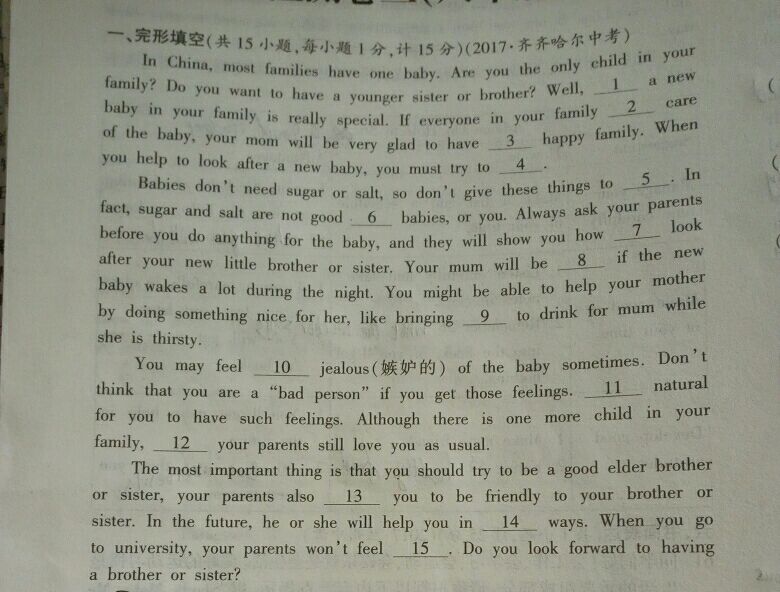 一、完形填空(共 15 小题,每小题 1 分,计 15 分)(2017·齐齐哈尔中考)
In China, most families have one baby. Are you the only child in your
family? Do you want to have a younger sister or brother? Well, 1 a new
baby in your family is really special. If everyone in your family 2 care
of the baby, your mom will be very glad to have 3 happy family. When
you help to look after a new baby, you must try to 4 .
Babies don't need sugar or salt, so don't give these things to 5 . In
fact, sugar and salt are not good 6 babies, or you. Always ask your parents
before you do anything for the baby, and they will show you how 7 look
after your new little brother or sister. Your mum will be 8 if the new
baby wakes a lot during the night. You might be able to help your mother
by doing something nice for her, like bringing 9 to drink for mum while
she is thirsty.
You may feel 10 jealous(嫉妒的) of the baby sometimes. Don't
think that you are a "bad person" if you get those feelings. 11 natural
for you to have such feelings. Although there is one more child in your
family, 12 your parents still love you as usual.
The most important thing is that you should try to be a good elder brother
or sister, your parents also 13 you to be friendly to your brother or
sister. In the future, he or she will help you in 14 ways. When you go
to university, your parents won't feel 15 . Do you look forward to having
a brother or sister?